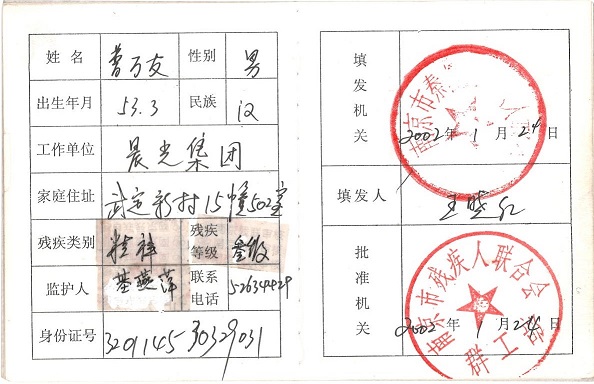 姓名 曹万友 性别 男
出生年月 53.3 民族 汉
工作单位 晨光集团
家庭住址 武定新村15幢502室
残疾类别 精神 残疾等级 叁级
监护人 基燕萍 联系电话 52634429
身份证号 320114530329031
填发机关 南京市秦
2002年1月24日
填发人 王晓红
批准机关 南京市残疾人联合会
群工部
2002年1月24日